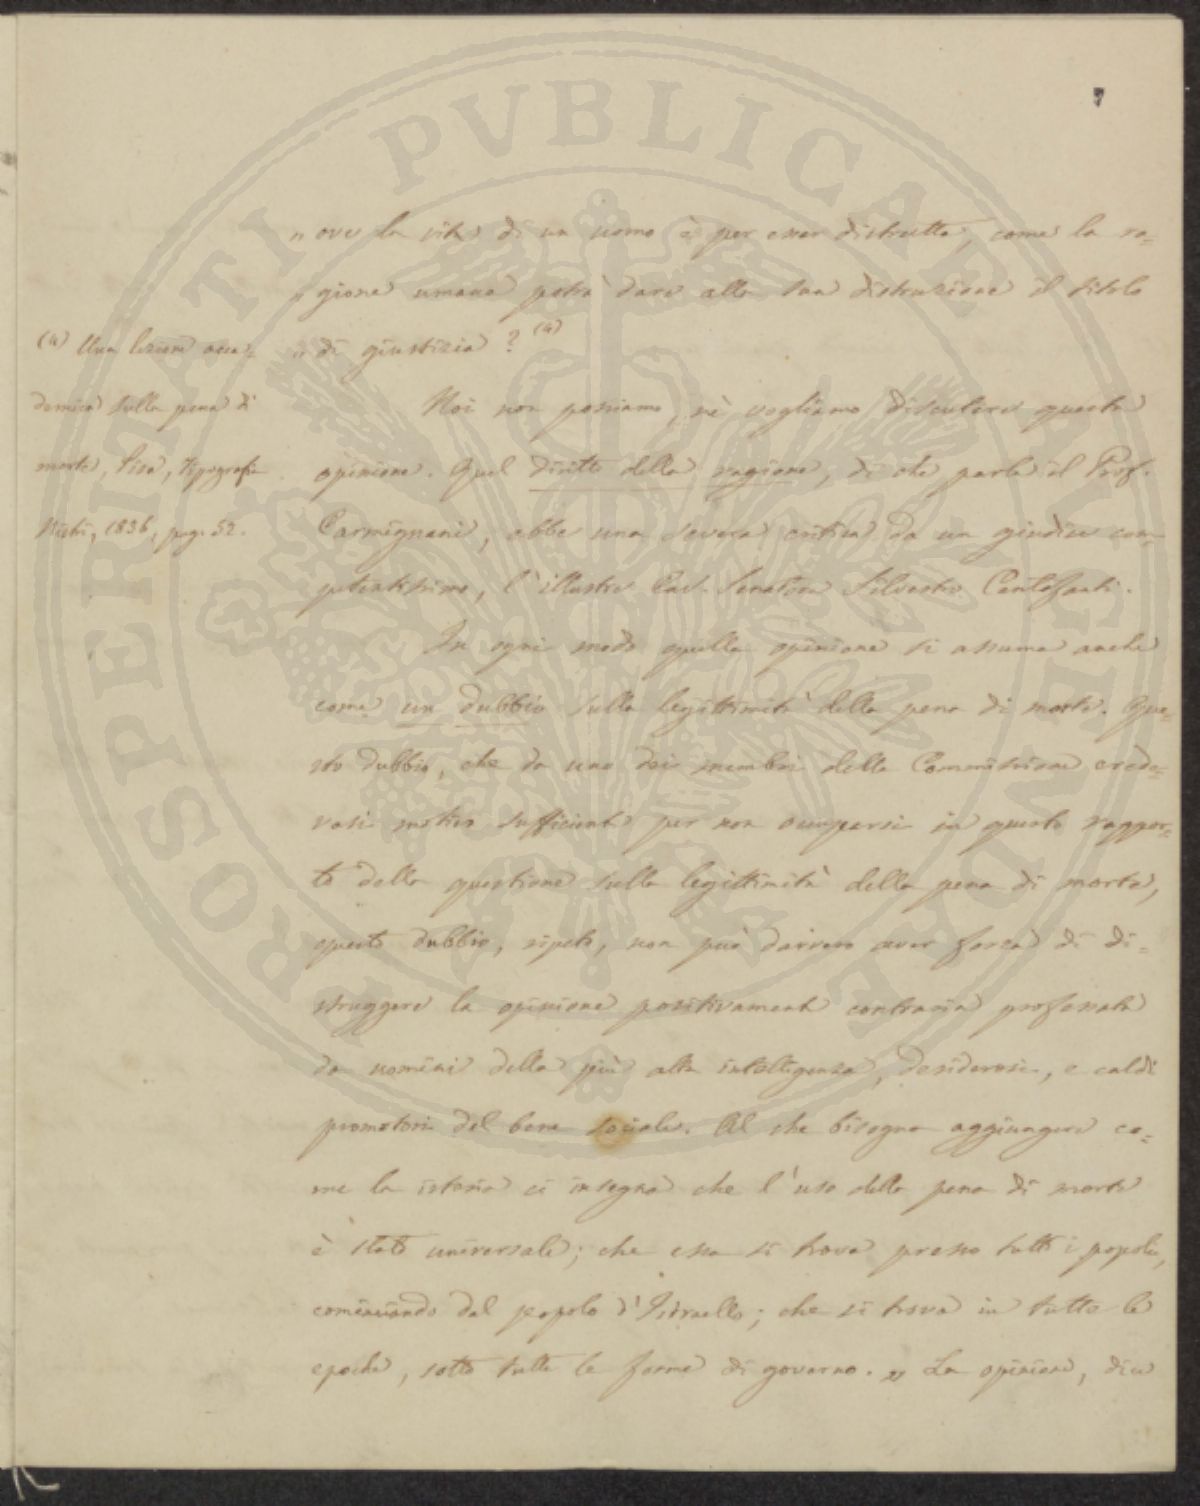 PROSPERITATI PVBLICAE AVGENDAE
" ove la vita di un uomo è per esser distrutta, come la ra=
" gione umana potrà dare alla sua distruzione il titolo
" di giustizia? (a)
(a) Una lezione acca=
demica sulla pena di
morte, Pisa, tipografia
Nistri, 1836, pag. 52.
Noi non possiamo, nè vogliamo discutere questa
opinione. Quel diritto della ragione, di che parla il Prof.
Carmignani, ebbe una severa critica da un giudice com=
petentissimo, l'illustre Cav. Senatore Silvestro Centofanti.
In ogni modo quella opinione si assuma anche
come un dubbio sulla legittimità della pena di morte. Que=
sto dubbio, che da uno dei membri della Commissione crede=
vasi motivo sufficiente per non occuparsi in questo rappor=
to della questione sulla legittimità della pena di morte,
questo dubbio, ripeto, non può davvero aver forza di di=
struggere la opinione positivamente contraria professata
da uomini della più alta intelligenza, desiderosi, e caldi
promotori del bene sociale. Al che bisogna aggiungere co=
me la istoria ci insegna che l'uso della pena di morte
è stato universale; che essa si trova presso tutti i popoli,
cominciando dal popolo d'Isdraello; che si trova in tutte le
epoche, sotto tutte le forme di governo. " La opinione, dice